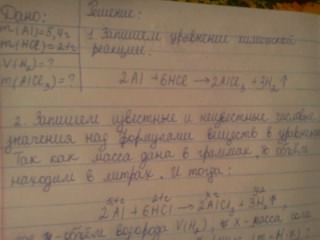 Дано:
m(Al)=5,4г
m(HCl)=21г
V(H₂)=?
m(AlCl₃)=?
Решение:
1. Запишем уравнение химической
реакции:
2Al + 6HCl → 2AlCl₃ + 3H₂↑
2. Запишем известные и неизвестные числовые
значения над формулами веществ в уравнении
Так как масса дана в граммах, то объём
находим в литрах. И тогда:
5,4г 21г xг
2Al + 6HCl → 2AlCl₃ + 3H₂↑
объём водорода V(H₂), x-масса соли